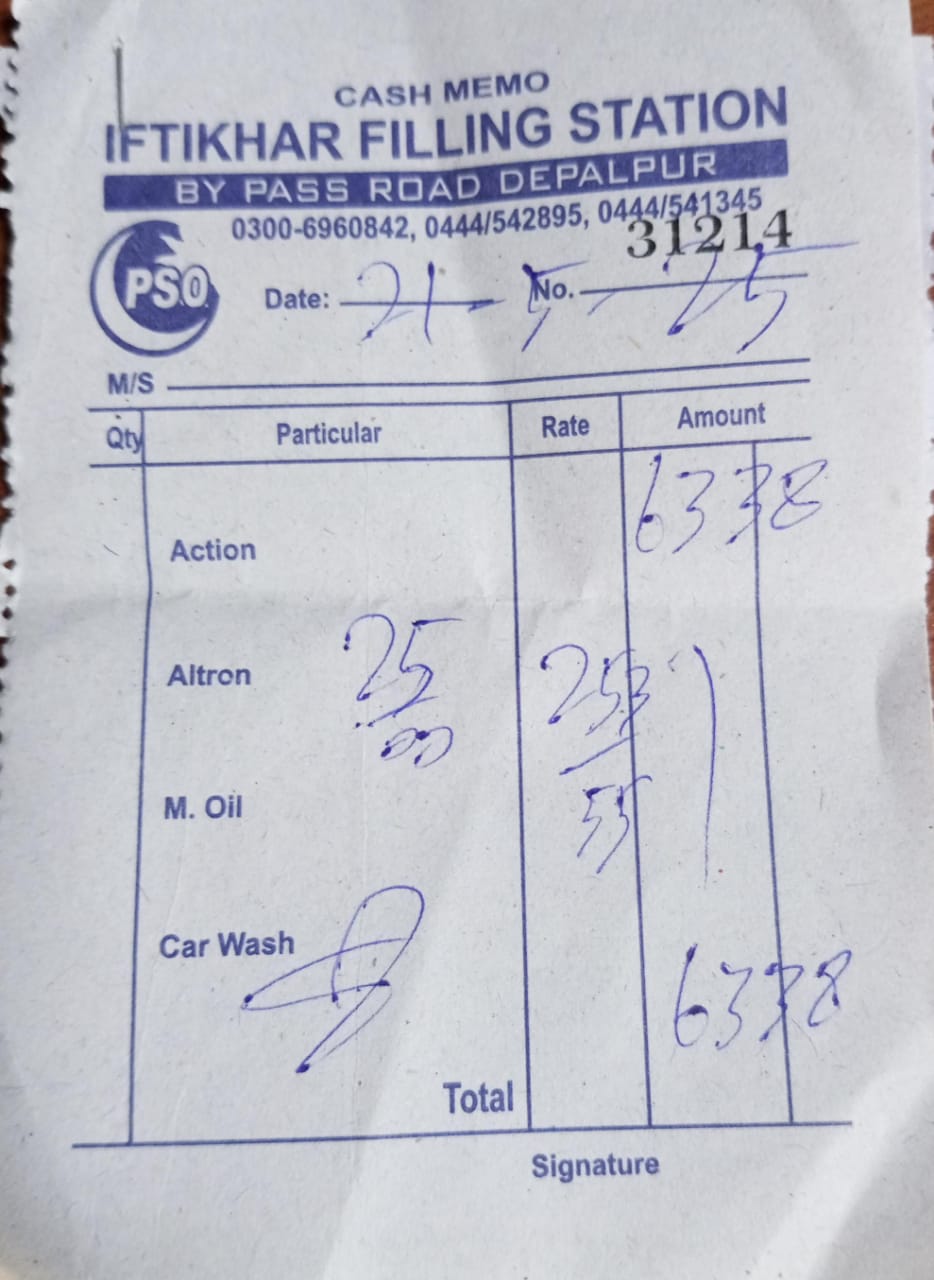 CASH MEMO
IFTIKHAR FILLING STATION
BY PASS ROAD DEPALPUR
0300-6960842, 0444/542895, 0444/541345
31214
PSO
Date: 21-5-25 No.
M/S
Qty Particular Rate Amount
6338
Action
Altron 25 253
00
M. Oil 55
Car Wash
6338
Total
Signature